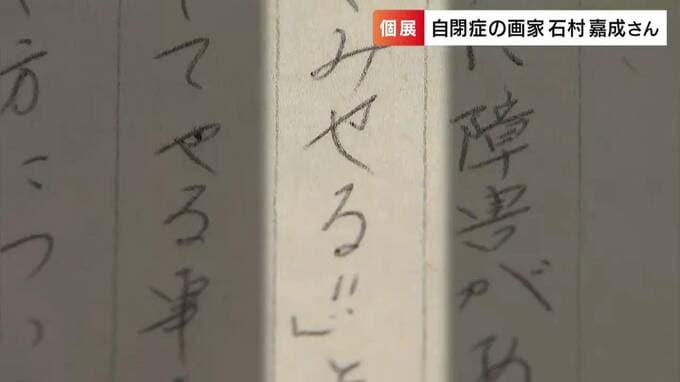 個展 自閉症の画家 石村嘉成さん
に障害があ
みせる!!」と
てやる事
方につい